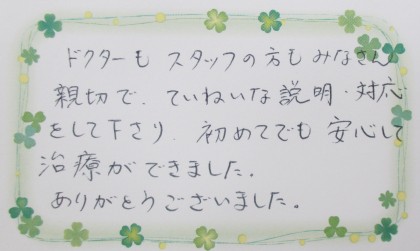 ドクターも スタッフの方も みなさん
親切で、ていねいな説明・対応
をして下さり、初めてでも 安心して
治療ができました。
ありがとうございました。